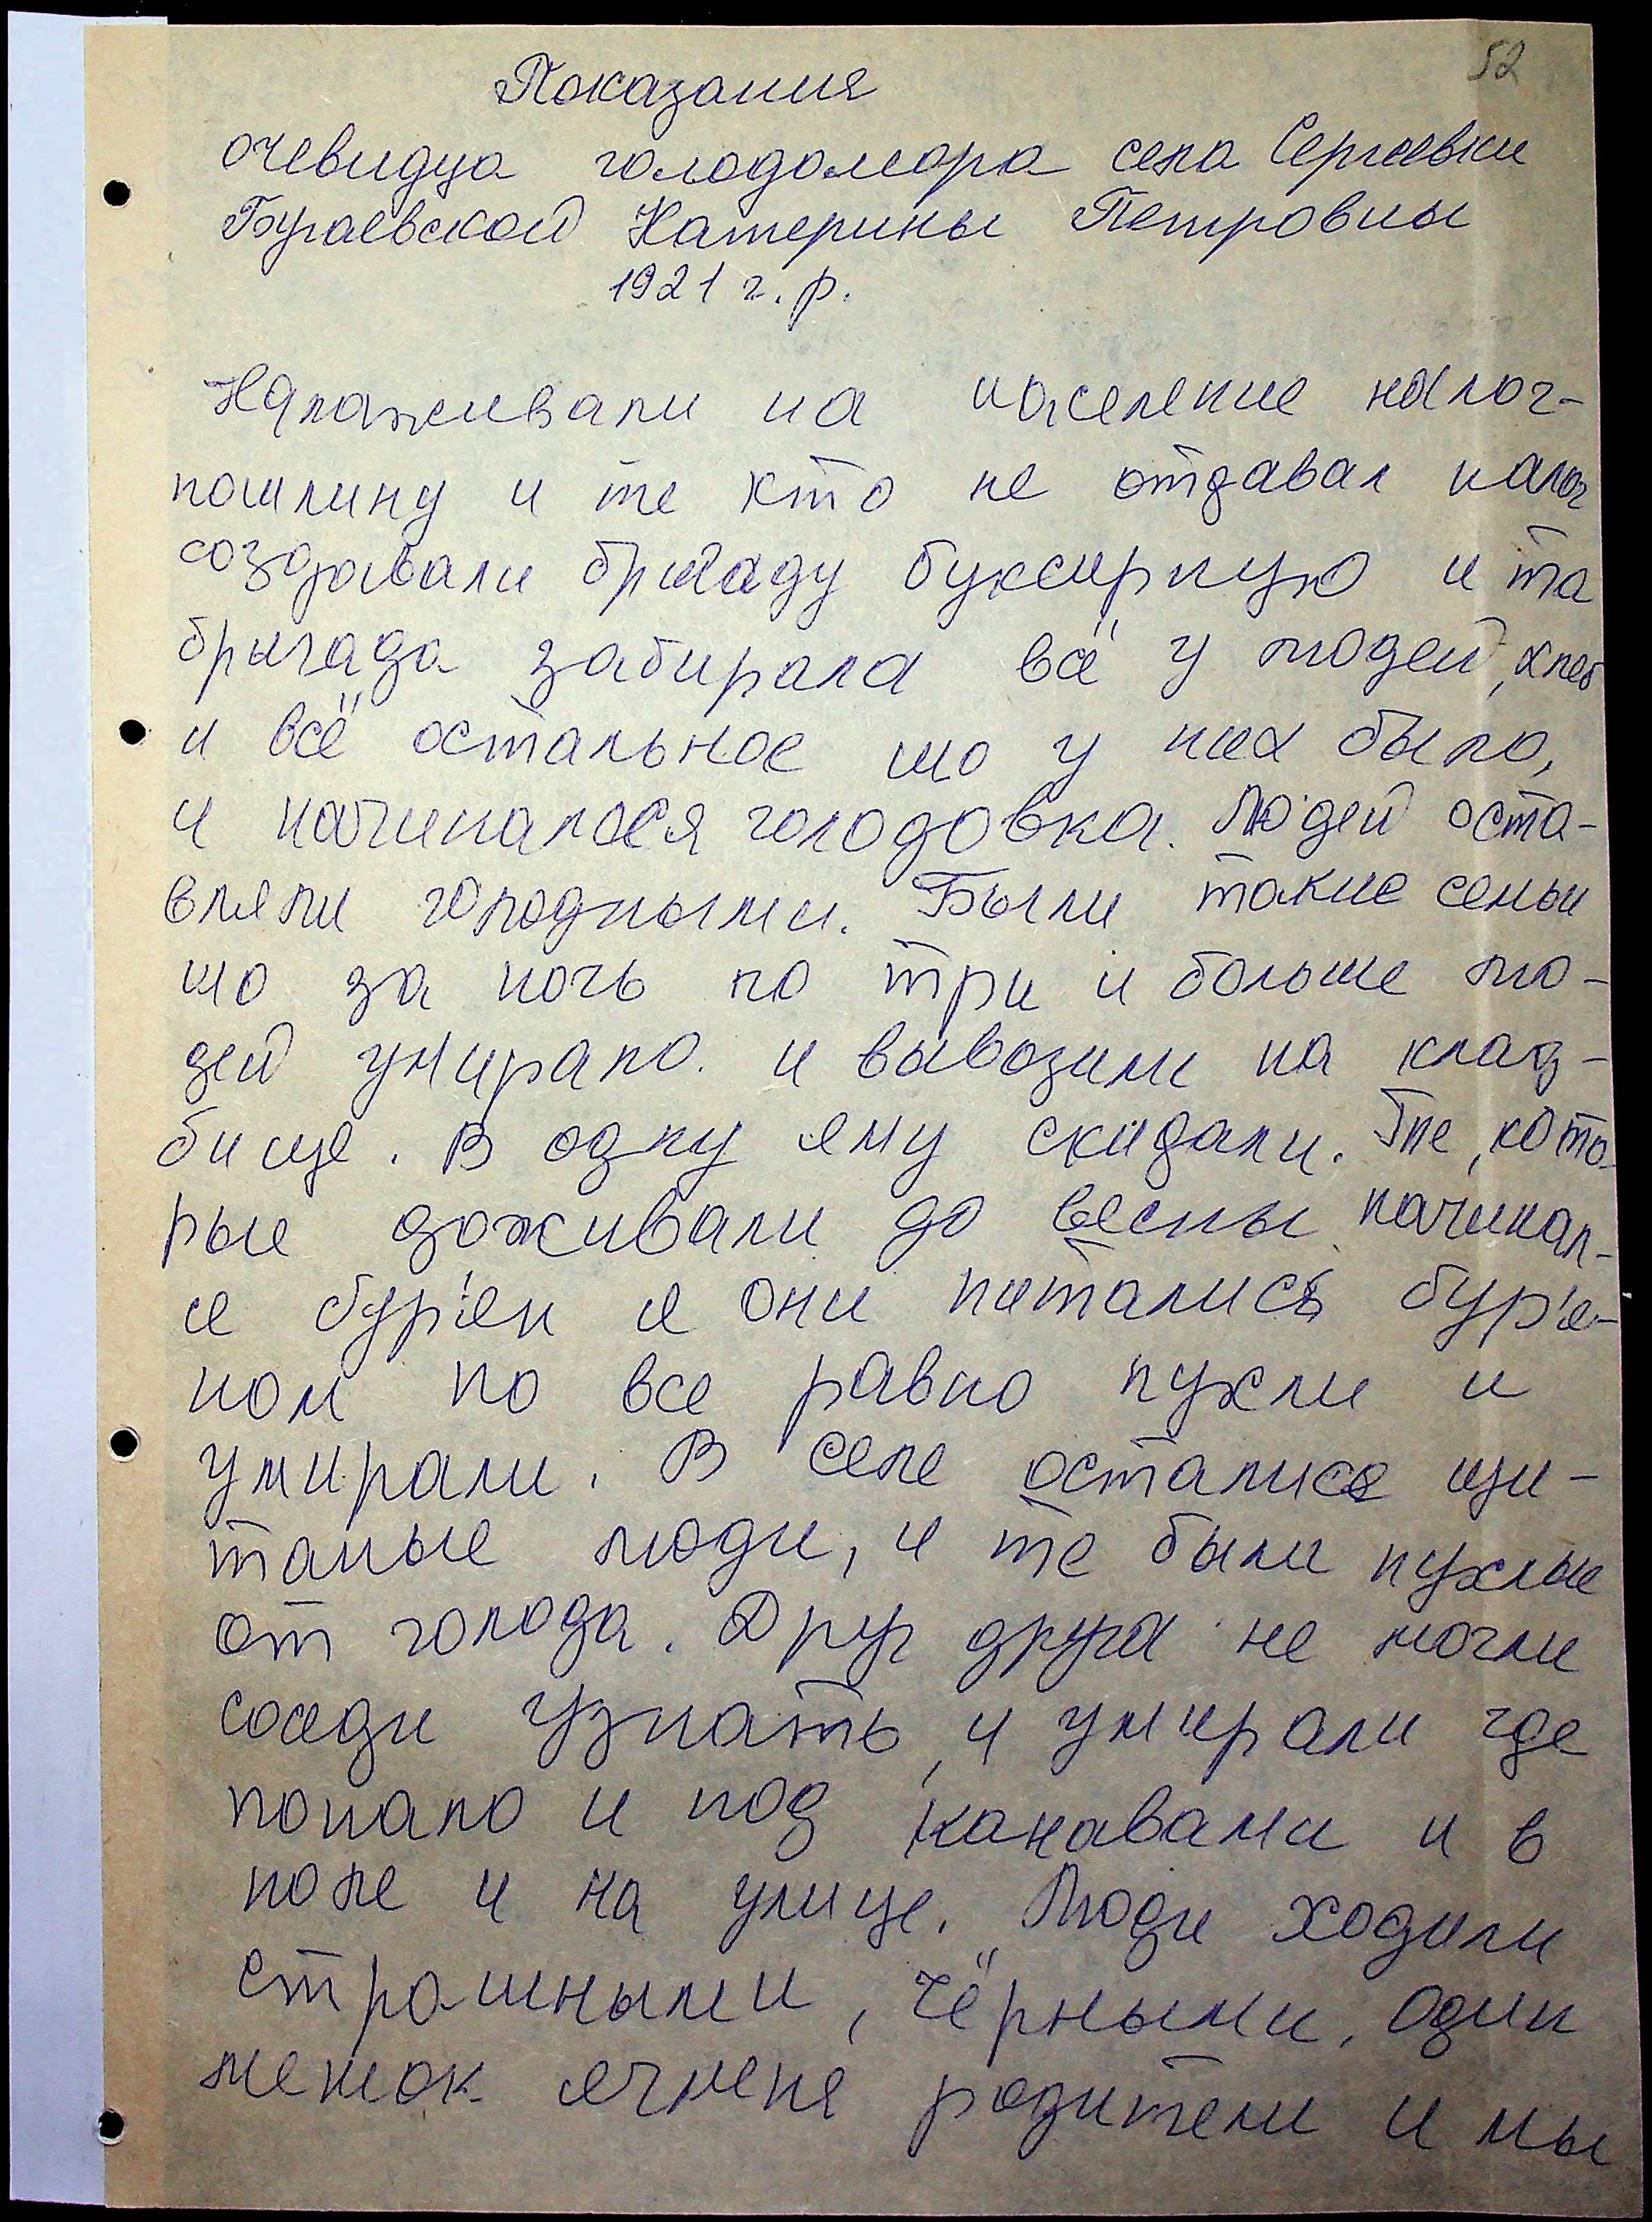 52
Показания
очевидца голодомора села Сергеевки
Бугаевской Катерины Петровны
1921 г. р.
Налаживали на население налог-
пошлину и те кто не отдавал налог
создавали бригаду буксирную и та
бригада забирала всё у людей, хлеб
и всё остальное шо у них было,
и начиналася голодовка. Людей оста-
вляли голодными. Были такие семьи
шо за ночь по три и больше лю-
дей умирало. и вывозили на клад-
бище. В одну яму скидали. Те, кото-
рые доживали до весны начинал-
ся бур'ян и они питались бур'я-
ном но все равно пухли и
умирали. В селе осталися щи-
таные люди, и те были пухлые
от голода. Друг друга не могли
соседи узнать, и умирали где
попало и под канавами и в
поле и на улице. Люди ходили
страшными, чёрными. Один
мешок ячменя родители и мы